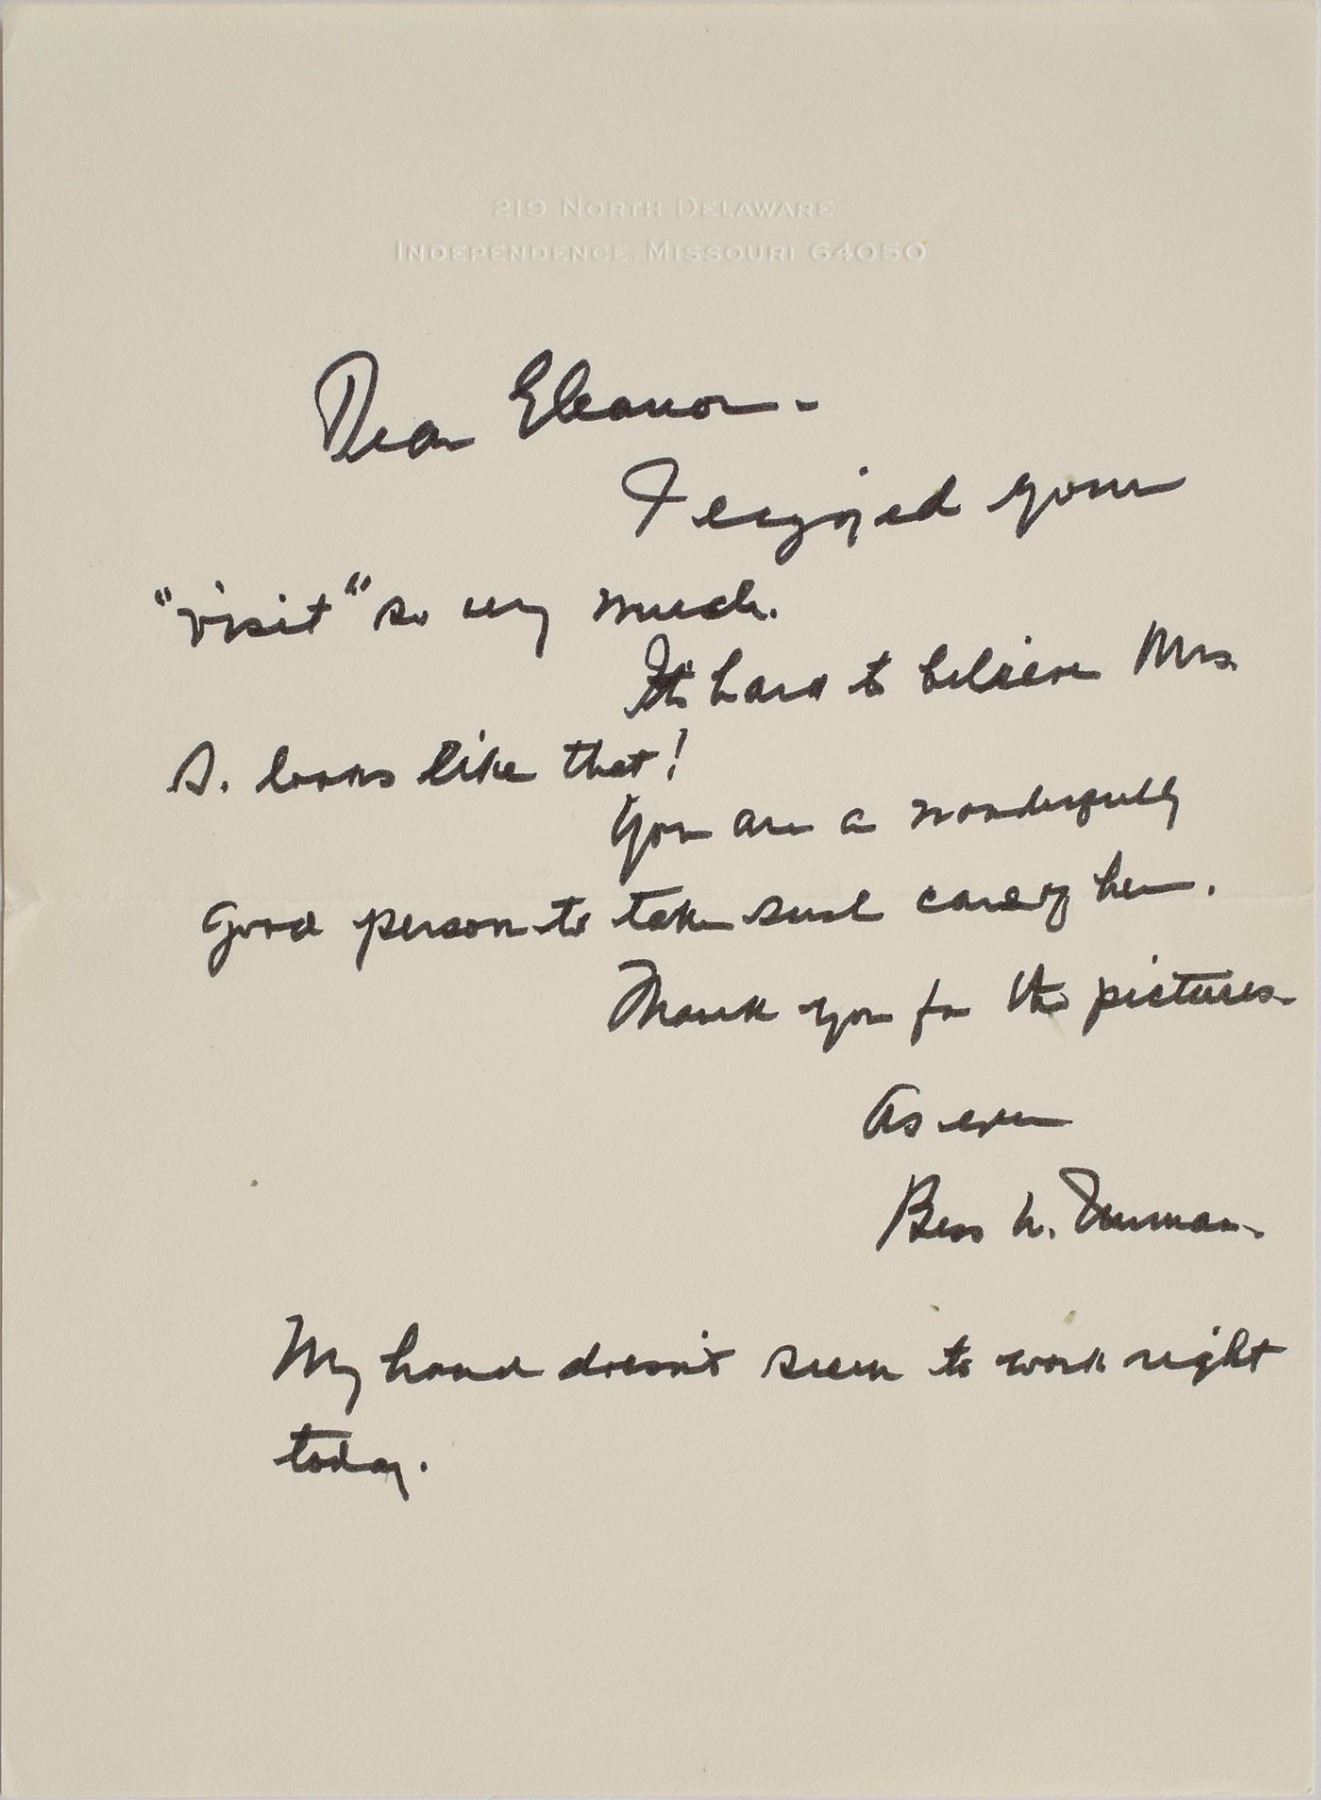 219 NORTH DELAWARE
INDEPENDENCE, MISSOURI 64050
Dear Eleanor -
I enjoyed your
"visit" so very much.
It's hard to believe Mrs.
S. looks like that!
You are a wonderfully
good person to take such care of her.
Thank you for the pictures.
As ever
Bess W. Truman.
My hand doesn't seem to work right
today.